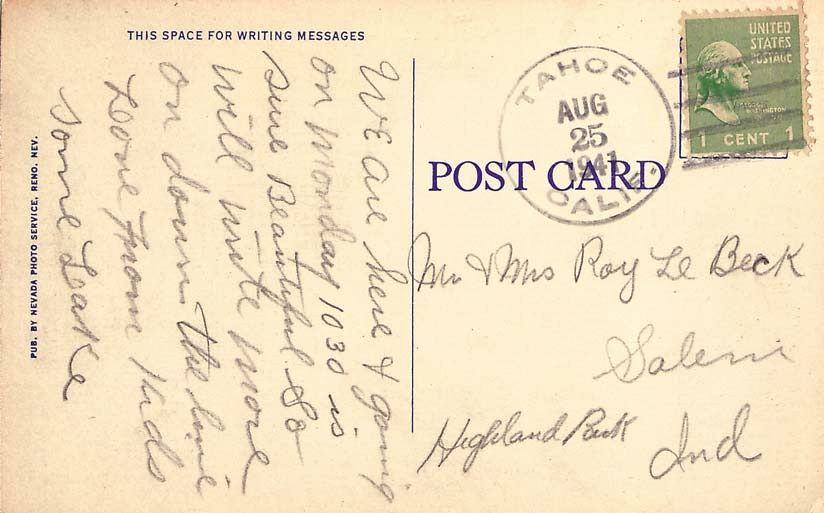 THIS SPACE FOR WRITING MESSAGES
We are here & going
on Monday 1030 is
sure Beautiful. So
will write more
on down the line
Love from Kids
some Lake
PUB. BY NEVADA PHOTO SERVICE, RENO, NEV.
TAHOE
AUG
25
1941
CALIF.
UNITED
STATES
POSTAGE
GEORGE
WASHINGTON
1 CENT 1
POST CARD
Mr & Mrs Roy Le Beck
Salem
Highland Park
Ind